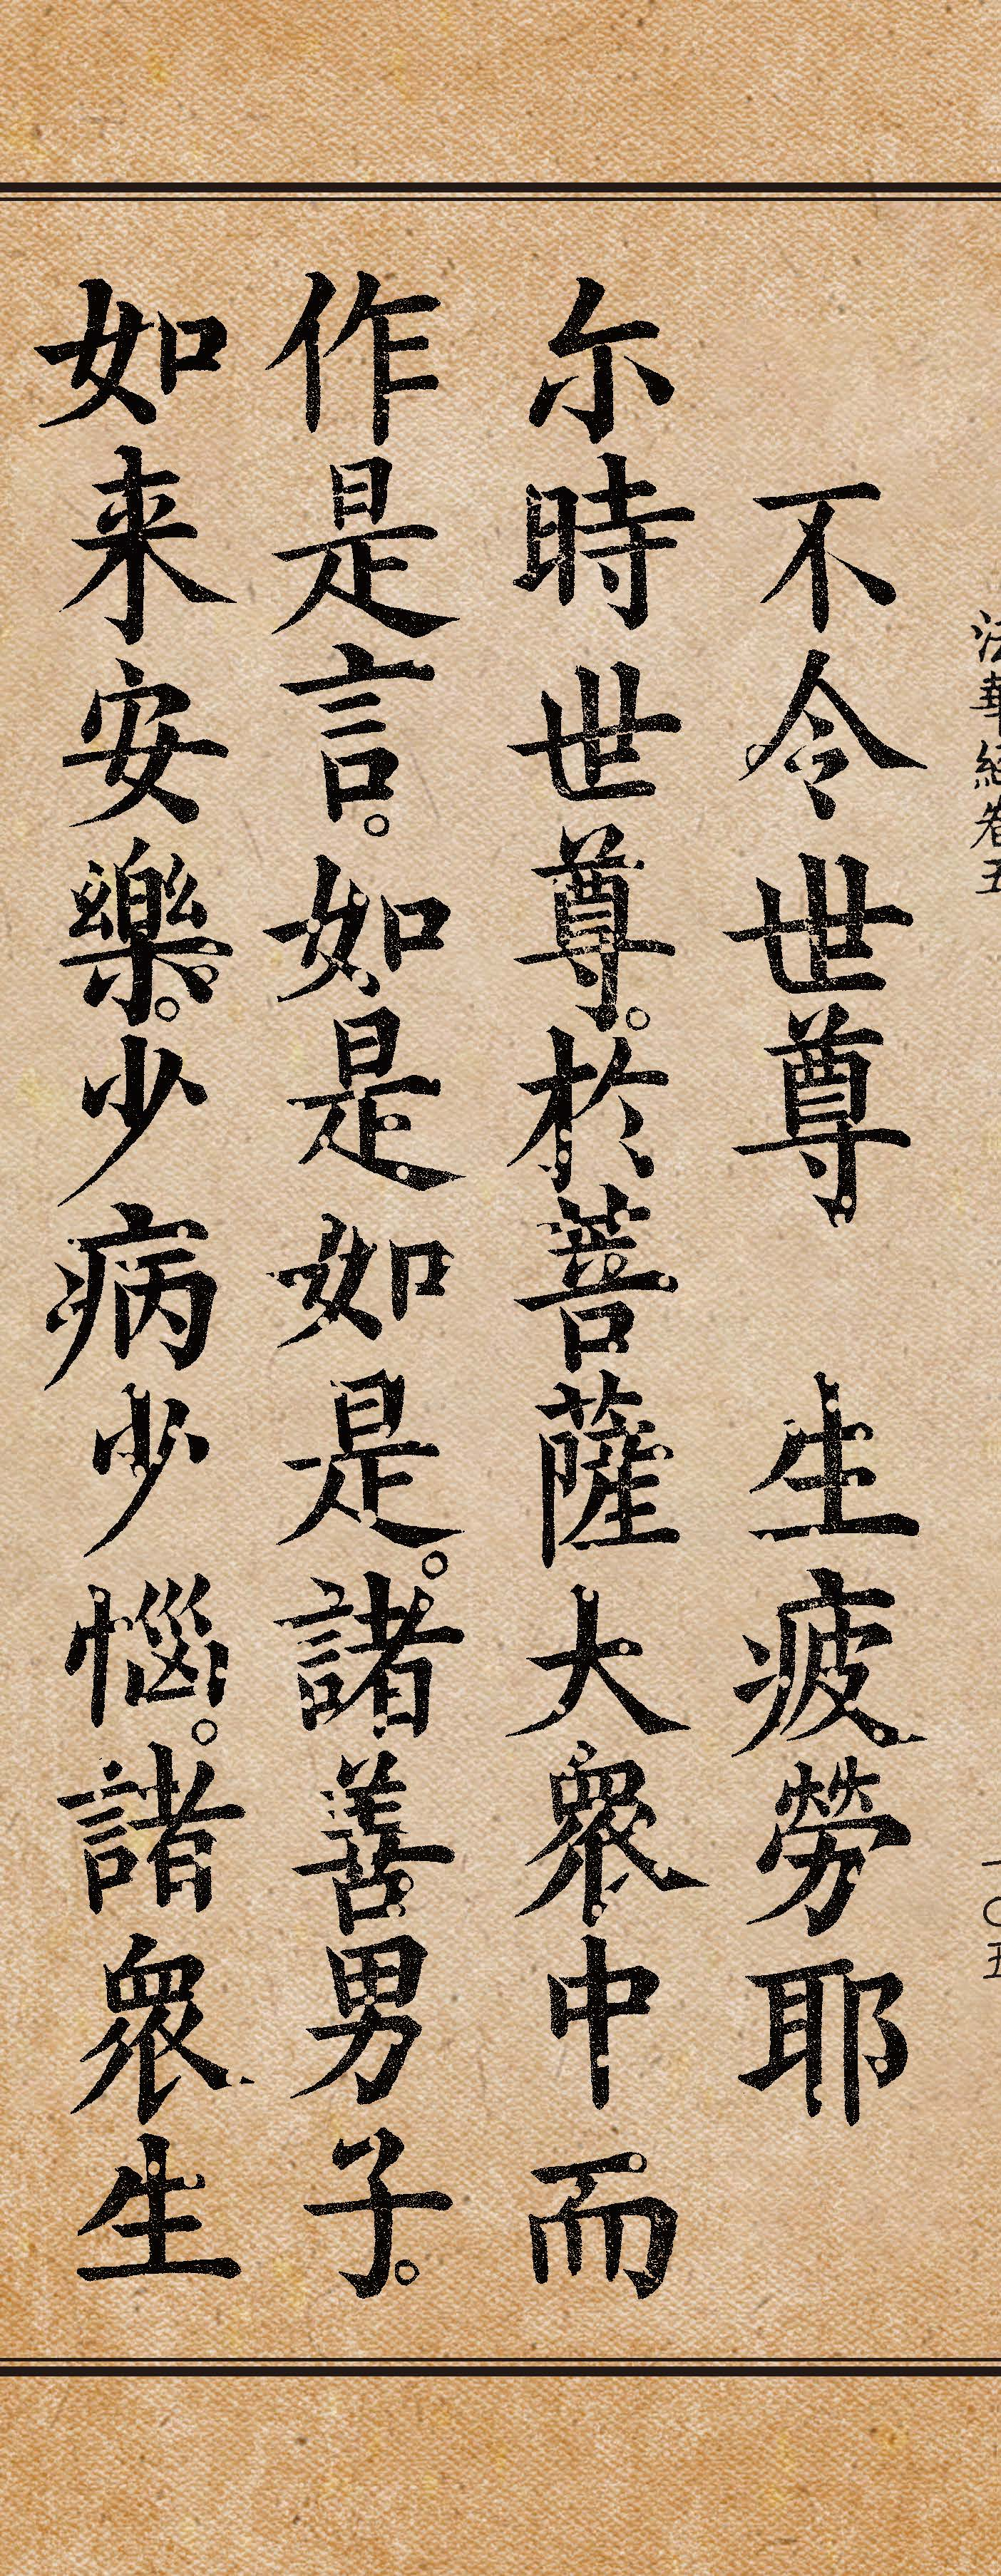 法華經卷五
一〇五
不令世尊　生疲勞耶
尒時世尊。於菩薩大眾中而
作是言。如是如是。諸善男子。
如来安樂。少病少惱。諸眾生